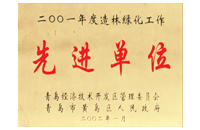 二〇〇一年度造林绿化工作
先进单位
青岛经济技术开发区管理委员会
青岛市黄岛区人民政府
二〇〇二年一月